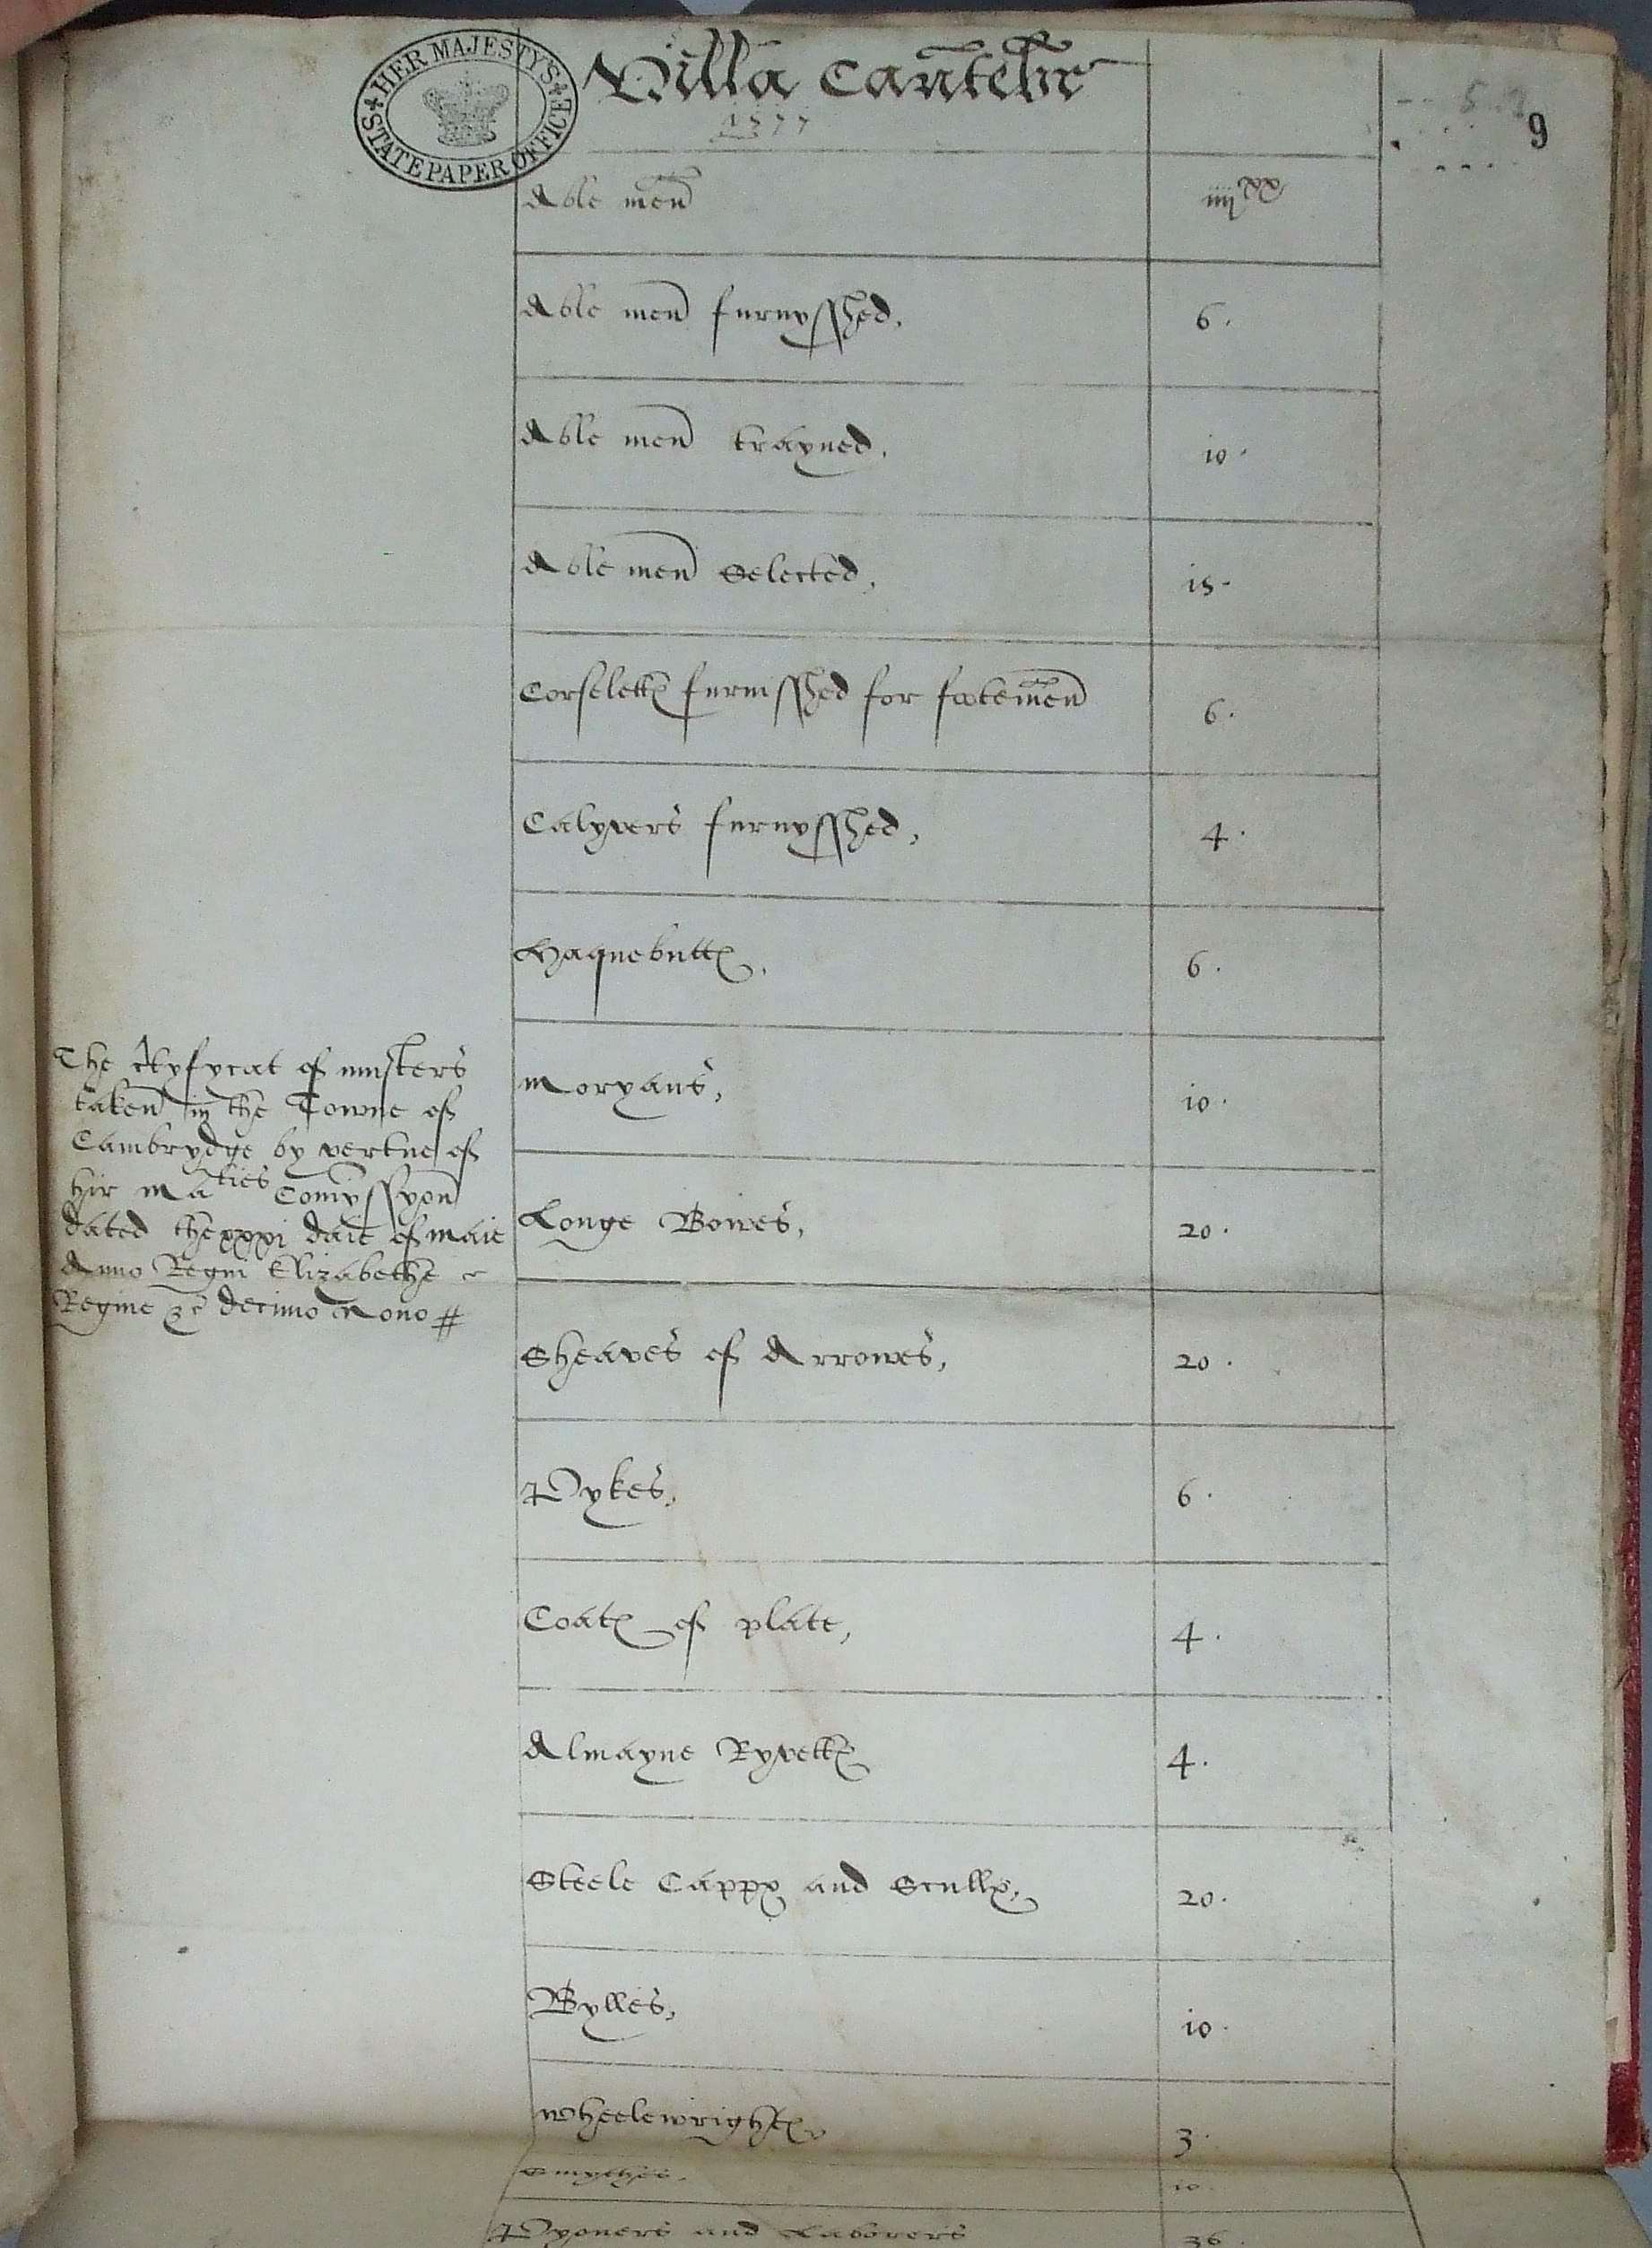 HER MAJESTY'S STATE PAPER OFFICE
Villa Cantebr
1577
9
Able men iiij^xx
Able men furnysshed, 6.
Able men trayned, 10.
Able men Selected, 15.
Corseletts furnisshed for footemen 6.
Calyvers furnysshed, 4.
Haquebutts, 6.
Moryans, 10.
Longe Bowes, 20.
Sheaves of Arrowes, 20.
Pykes, 6.
Coats of plate, 4.
Almayne Ryvetts 4.
Steele Capps and Sculls, 20.
Bylles, 10.
Wheelewrights, 3.
Smythes, 10.
Pyoners and Laborers 36.
The Ctyfycat of musters
taken in the Towne of
Cambrydge by vertue of
hir Ma^ties Comyssyon
dated the xxxi daie of Maie
Anno Regni Elizabethe
Regine &c decimo Nono #